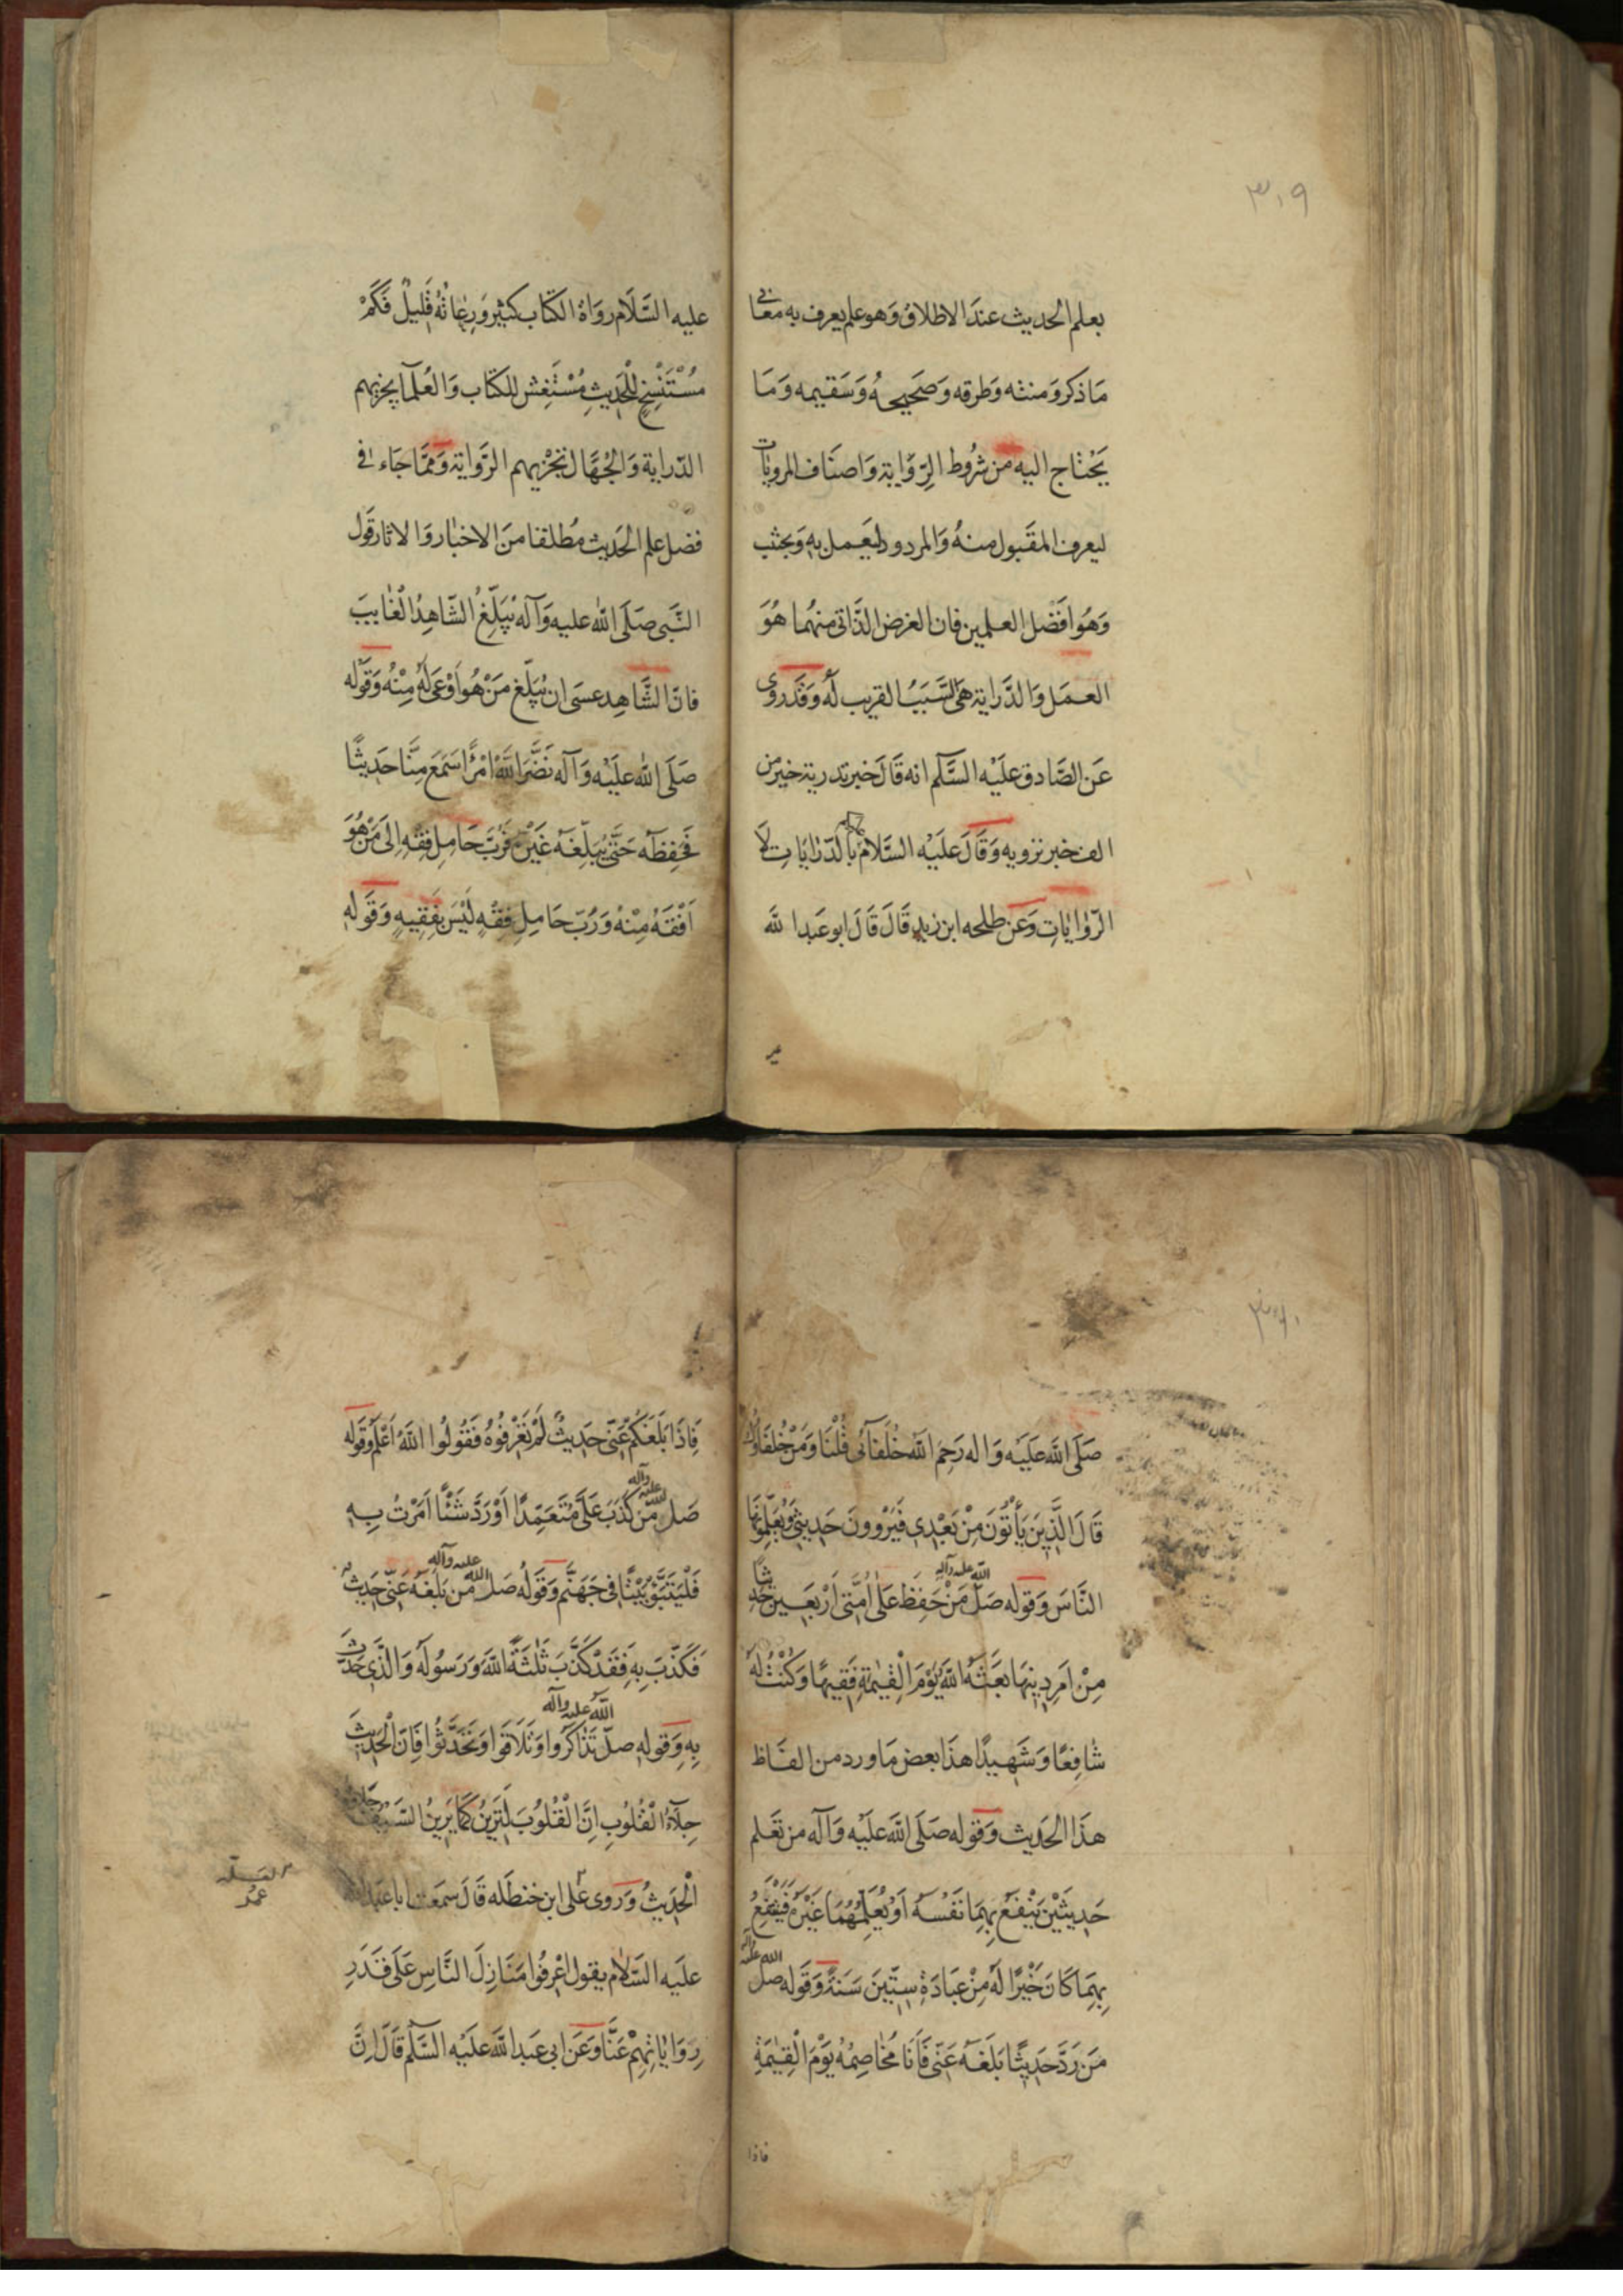 ٣٠٩
بعلم الحديث عند الاطلاق وَهو علم يعرف به معانى
مَا ذكر وَمتنه وَطرقه وَصَحيحهُ وَسَقيمه وَمَا
يَحْتاج اليه من شرُوط الرِّوَاية وَاصنَاف المرويات
ليعرف المقَبول منهُ وَالمردود ليَعمل به وَيجتنب
وَهُوَ افَضل العلمين فان الغرض الذَّاتى منهُما هُوَ
العمَل وَالدّراية هىَ السَّبَبُ القريب لهُ وَقدَروى
عَن الصَّادق علَيْه السَّلم انه قَالَ خبر تدرية خير من
الف خبر ترويه وَقَالَ علَيْه السَّلامُ بالدّرَايَاتِ لَا
الرّوَايَاتِ وَعَن طلحه ابن زيد قَالَ قَالَ ابو عَبدالله
علَيه السَّلَام روَاةُ الكتَاب كثير وَرعَاتهُ قَليلٌ فكَمْ
مُسْتَنْسِخٍ لِلْحَديثِ مُسْتَغِش للكتَاب وَالعُلمَآ يحزنهم
الدّراية وَالجُهَّال تحزنهم الرَّوَاية وَممَّا جَاء فى
فضل علم الحَديث مُطلقا مِنَ الاخبَار وَالاثار قَول
النَّبى صَلى الله عليه وَآله يُبَلّغ الشَّاهِدُ الْغَايبَ
فانّ الشَّاهِد عسَى ان يُبَلّغ مَنْ هُوَ اَوْعىَ لَهُ مِنْهُ وَقَوْله
صَلى الله علَيْه وَآله نَضَّرَ اللهُ امْرًَا سَمَعَ مِنَّا حَديثًا
فَحَفِظَهُ حَتَّى يُبَلِّغَهُ غَيْرَهُ فَرُبَّ حَامِلِ فِقْهٍ اِلىَ مَنْ هُوَ
اَفْقَهُ مِنْهُ وَرُبَّ حَامِلِ فِقْهٍ لَيْسَ بِفَقِيهٍ وَقَوله
صَلى الله عَلَيْه وَاله رَحِمَ اللهُ خُلَفَآئى قُلْنَا وَمَنْ خُلفَاؤُكَ
قَالَ الَّذِينَ يَأْتُونَ مِنْ بَعْدى فَيَرْوُونَ حَديثى وَيُعَلِّمُونَهَا
النَّاسَ وَقوله صَلى الله عليه وآله مَنْ حَفِظَ عَلىَ اُمَّتى اَرْبَعِينَ حَديثًا
مِنْ اَمرِ دينِهَا بَعَثَهُ اللهُ يَوْمَ الْقِيمَةِ فَقِيهًا وَكُنْتُ لَهُ
شَافِعًا وَشَهيدًا هذَا بعض مَا ورد من الفَاظ
هذَا الحَديث وَقوله صَلى الله علَيْه وَآله من تعَلم
حَديثَيْنِ يَنْفَعُ بهِمَا نَفْسَهُ اَوْ يُعَلِّمُهُمَا غَيْرَهُ فَيَنْتَفِعُ
بِهِمَا كَانَ خَيْرًا لَهُ مِنْ عِبَادَةِ سِتّينَ سَنَةً وَقَوله صلى الله عليه وآله
مَنْ رَدَّ حَديثًا بَلَغَهُ عَنّى فَاَنَا مُخَاصِمُهُ يَوْمَ الْقِيمَةِ
فاذا
فَاِذَا بَلَغَكُمْ عَنّى حَديثٌ لَمْ تَعْرِفُوهُ فَقُولُوا اللهُ اَعْلَمُ وَقَوله
صَلى الله عليه وآله مَنْ كَذَبَ عَلَىَّ مُتَعَمِّدًا اَوْ رَدَّ شَيْئًا اَمَرْتُ بِهِ
فَلْيَتَبَوَّءْ بَيْتًا فى جَهَنَّمَ وَقَوْلُه صَلى الله عليه وآله مَنْ بَلَغَهُ عَنّى حَديثٌ
فَكَذَّبَ بِهِ فَقَدْ كَذَّبَ ثَلثَةً اللهَ وَرَسُولَهُ وَالَّذى حَدَّثَ
بِهِ وَقوله صلى الله عليه وآله تَذَاكَرُوا وَتَلَاقَوا وَتَحَدَّثُوا فَاِنَّ الْحَديثَ
جِلَآءُ الْقُلُوبِ اِنَّ الْقُلُوبَ لَتَرينُ كَمَا يَرينُ السَّيْفُ جِلَاؤهُ
الْحَديثُ وَرَوى عَلى ابن حنظَله قَالَ سَمعَت ابا عَبدالله
علَيه السَّلام يقول اعْرِفُوا مَنَازِلَ النَّاسِ عَلَى قَدَرِ
رِوَايَاتِهِمْ عَنَّا وَعَن ابى عَبدالله علَيْه السَّلم قَالَ اِنَّ